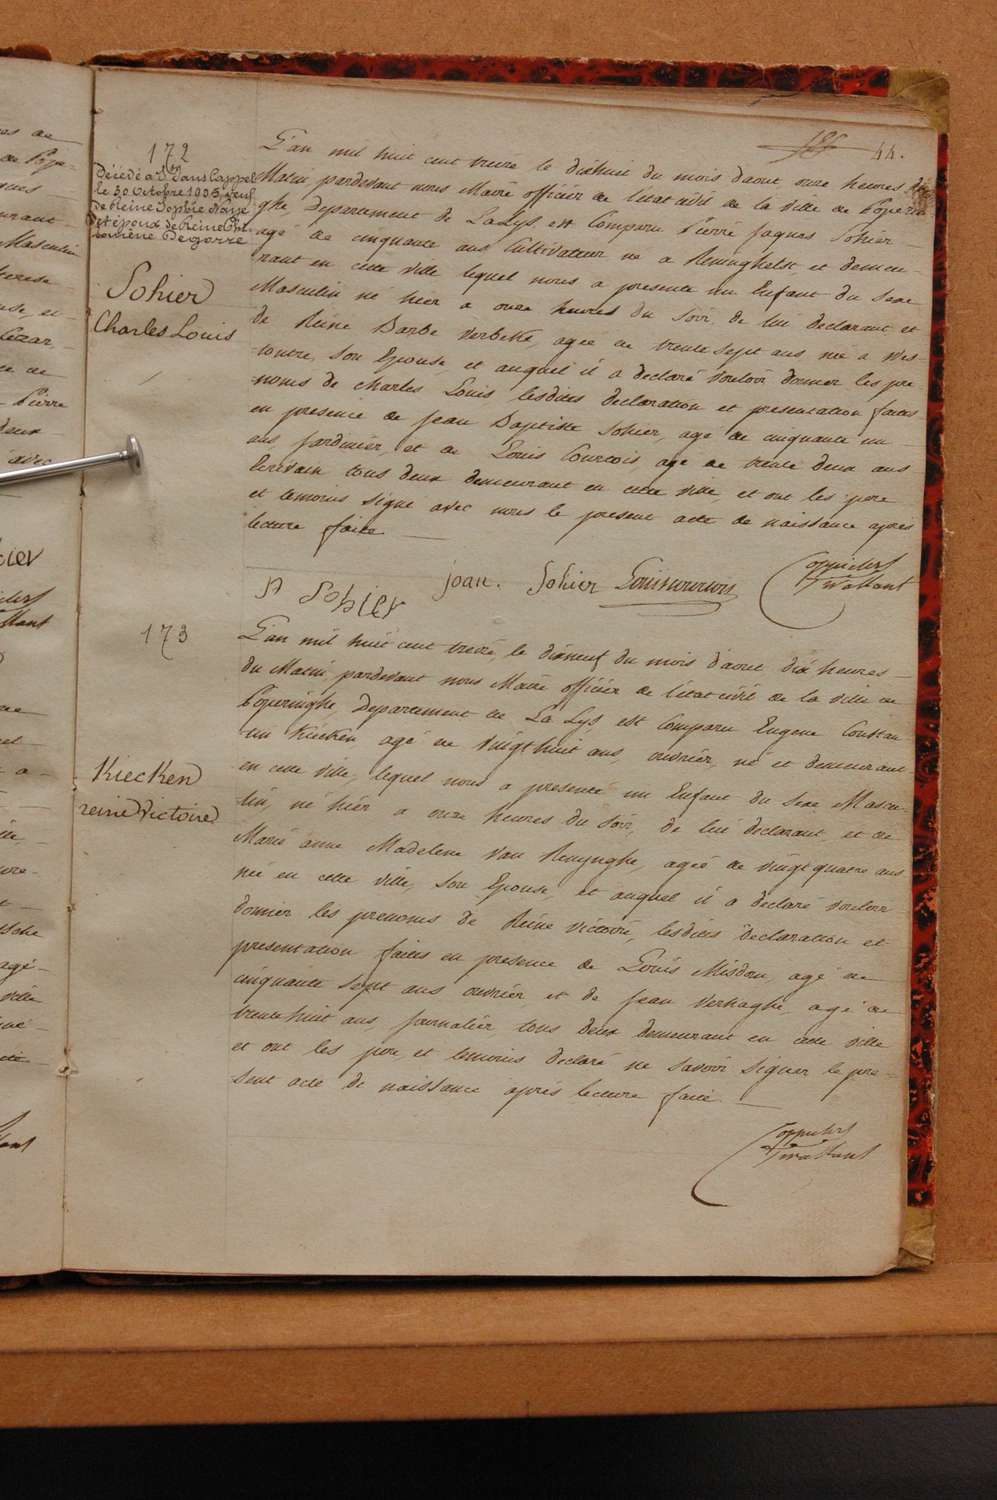 44.
172
Décédé à St Jans Cappel
le 30 Octobre
de Reine Sophie
et époux de Reine
Sohier
Charles Louis
L'an mil huit cent treize le dixhuit du mois d'aout, onze heures du
Matin pardevant nous Maire officier de l'état civil de la ville de Poperin
ghe, Departement de La Lys est Comparu Pierre Jaques Sohier
agé de cinquante ans Cultivateur né a Reninghelst et demeu
rant en cette ville lequel nous a presenté un Enfant du Sexe
Masculin né hier a onze heures du Soir de lui declarant et
de Reine Barbe Verbeke, agée de trente sept ans née a Wes
toutre, Son Epouse, et auquel il a declaré vouloir donner les pre
noms de Charles Louis lesdites declaration et presentation faites
en presence de Jean Baptiste Sohier, agé de cinquante un
ans, Jardinier, et de Louis Courtois, agé de trente deux ans
Ecrivain tous deux demeurant en cette ville, et ont les pere
et temoins signé avec nous le present acte de naissance après
lecture faite
P Sohier joan. Sohier Louis Courtois
173
Kiecken
reine Victoire
L'an mil huit cent treize, le dixneuf du mois d'aout dix heures
du Matin, pardevant nous Maire officier de l'état civil de la ville de
Poperinghe, departement de La Lys, est Comparu Eugene Constan
tin Kiecken agé de vingthuit ans, ouvrier, né et demeurant
en cette ville, lequel nous a presenté un Enfant du Sexe Mascu
lin, né hier a onze heures du Soir, de lui declarant, et de
Marie anne Madelene Van Renynghe, agée de vingt quatre ans
née en cette ville, Son Epouse, et auquel il a declaré vouloir
donner les prenoms de Reine Victoire, lesdites declaration et
presentation faites en presence de Louis Misdom, agé de
cinquante sept ans ouvrier, et de Jean Verhaghe, agé de
trentehuit ans, journalier tous deux demeurant en cette ville
et ont les pere et temoins declaré ne savoir signer le pre-
sent acte de naissance après lecture faite